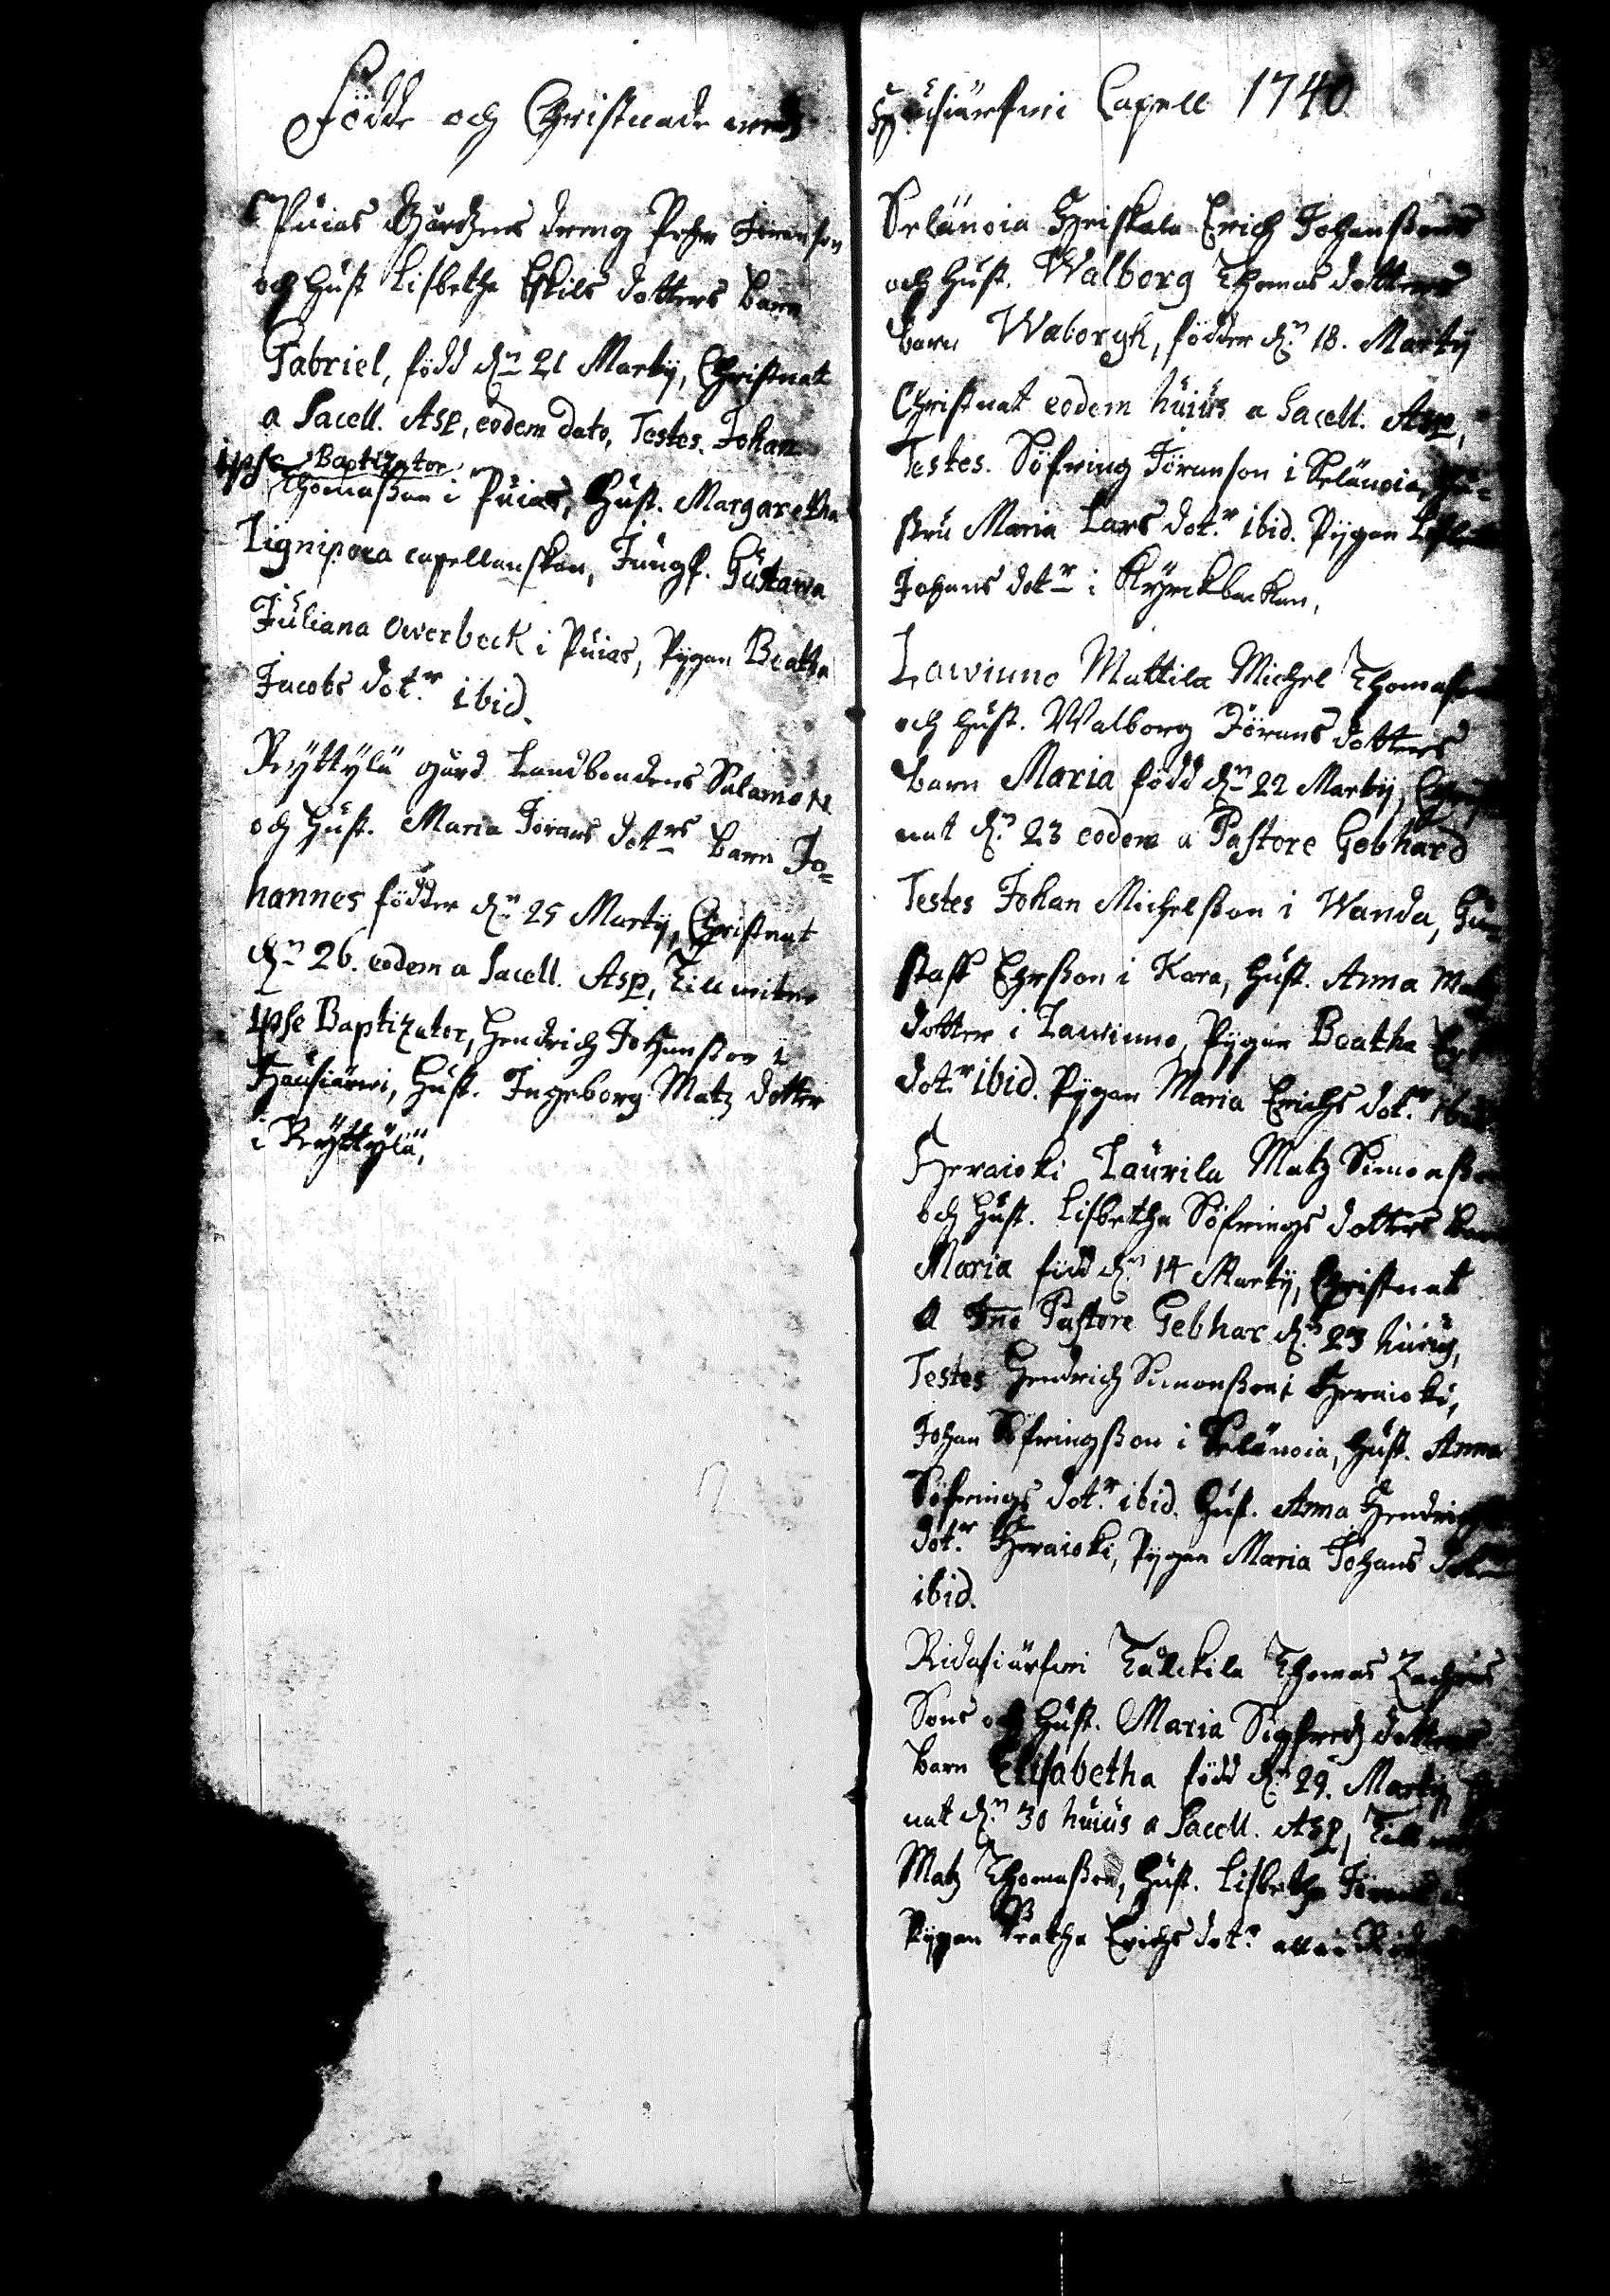 Födde och Christnade wedh
Puias Gårdzens dreng Pehr Jöranson
och Hust Lisbetha Eskils dotters barn
Gabriel, född dn 21 Martij, Christnat
a Sacell. Asp, eodem dato, Testes. Johan
ipse Baptizator
Thomasson i Puias, Hust. Margaretha
Lignipoea capellanskan, Jungf. Gustawa
Juliana Owerbeck i Puias, Pygan Beatha
Jacobs dotr ibid.
Ryttylä gård Landbondens Salamon
och Hust. Maria Jörans dotrs barn Jo=
hannes födder dn 25 Martij, Christnat
dn 26. eodem a Sacell. Asp, Till witne
ipse Baptizator, Hendrich Johansson i
Hausiärwi, Hust. Ingeborg Matz dotter
i Ryttylä,
Hausiärfwi Capell 1740
Selänoia Heiskala Erich Johanssons
och Hust. Walborg Thomas dotters
barn Waborgh, födder dn 18. Martij
Christnat eodem huius a Sacell. Asp,
Testes. Söfring Jöranson i Selänoia, Hu=
stru Maria Lars dotr ibid. Pygan
Johans dotr i Kyrckbacken,
Lawinno Mattila Michel Thomason
och Hust. Walborg Jörans dotters
barn Maria född dn 22 Martij, Christ
nat dn 23 eodem a Pastore Gebhard
Testes Johan Michelsson i Wanda, Gu=
staff Ersson i Kara, Hust. Anna Matz
dotter i Lawinno, Pygan Beatha
dotr ibid. Pygan Maria Erichs dotr ibid
Heraioki Laurila Matz Simonsson
och Hust. Lisbetha Söfrings dotters barn
Maria född dn 14 Martij, Christnat
a Dno Pastore Gebhar dn 23 huius,
Testes Hendrich Simonsson i Heraioki,
Johan Söfringsson i Selänoia, Hust. Anna
Söfrings dotr ibid. Hust. Anna Hendrichs
dotr Heraioki, Pygan Maria Johans dotter
ibid.
Ridasiärfwi Tålckila Thomas Zachris
Sons och Hust. Maria Sigfredz dotters
barn Elisabetha född dn 29. Martij
nat dn 30 huius a Sacell. Asp, Till
Matz Thomasson, Hust. Lisbetha Jörans
Pygan Beatha Erichs dotr alla i